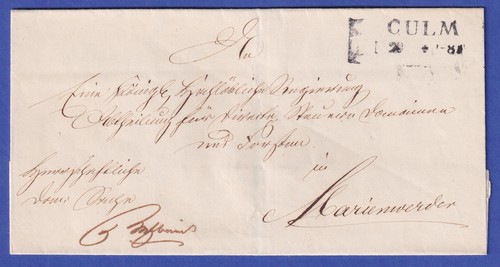 CULM
An
Eine Königl. Hochlöbliche Regierung
Abtheilung für directe Steuern Domainen
und Forsten
in
Marienwerder
Herrschaftliche
Dom: Sache